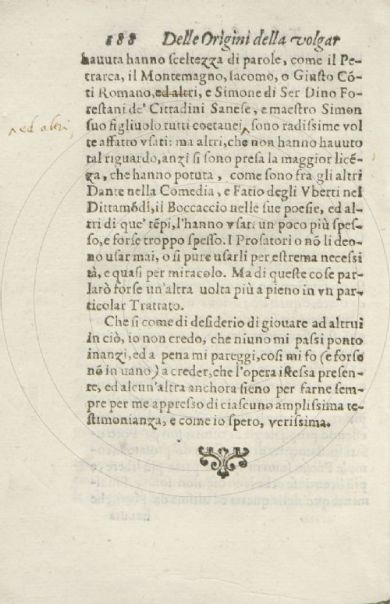 188 Delle Origini della volgar
hauuta hanno sceltezza di parole, come il Pe-
trarca, il Montemagno, Iacomo, o Giusto Cō-
ti Romano, ed altri, e Simone di Ser Dino Fo-
restani de' Cittadini Sanese, e maestro Simon
ned altri,
suo figliuolo tutti coetanei, sono radissime vol
te affatto vsati: ma altri, che non hanno hauuto
tal riguardo, anzi si sono presa la maggior licē-
za, che hanno potuta, come sono fra gli altri
Dante nella Comedia, e Fatio degli Vberti nel
Dittamōdi, il Boccaccio nelle sue poesie, ed al-
tri di que' tēpi, l'hanno vsati un poco più spes-
so, e forse troppo spesso. I Prosatori o nō li deo-
no usar mai, o si pure usarli per estrema necessi
tà, e quasi per miracolo. Ma di queste cose par-
larò forse un'altra uolta più a pieno in vn par-
ticolar Trattato.
Che si come di desiderio di giouare ad altrui
in ciò, io non credo, che niuno mi passi ponto
inanzi, ed a pena mi pareggi, cosi mi fo (e forse
nō in uano) a creder, che l'opera istessa presen-
te, ed alcun'altra anchora sieno per farne sem-
pre per me appresso di ciascuno amplissima te-
stimonianza, e come io spero, verissima.